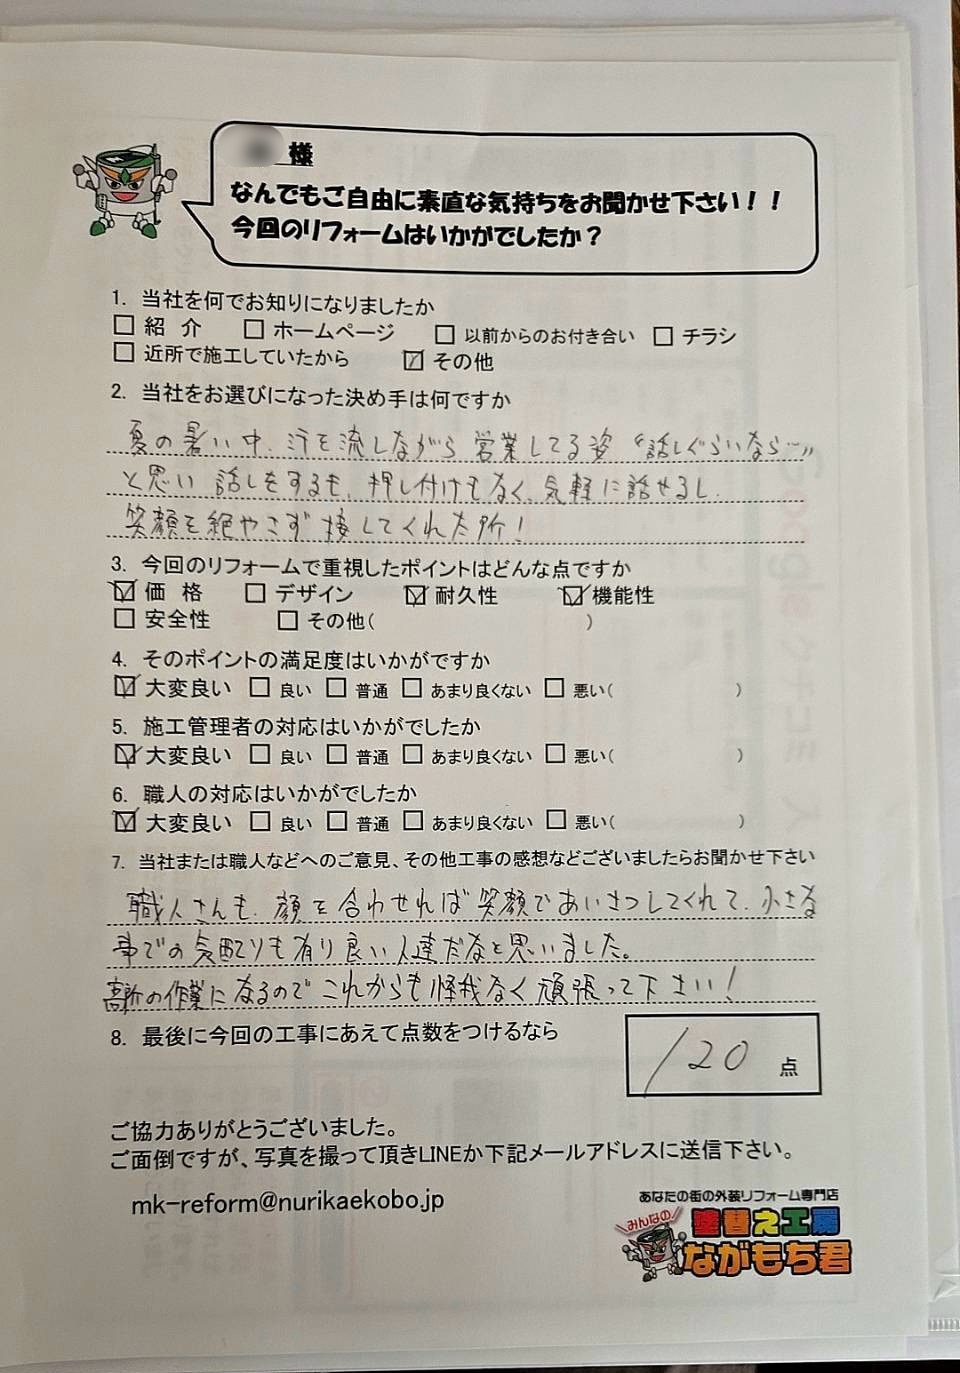 様
なんでもご自由に素直な気持ちをお聞かせ下さい！！
今回のリフォームはいかがでしたか？
1. 当社を何でお知りになりましたか
□ 紹 介 □ ホームページ □ 以前からのお付き合い □ チラシ
□ 近所で施工していたから ☑ その他
2. 当社をお選びになった決め手は何ですか
夏の暑い中、汗を流しながら営業してる姿 “話しぐらいなら…”
と思い 話しをするも、押し付けもなく、気軽に話せるし、
笑顔を絶やさず接してくれた所！
3. 今回のリフォームで重視したポイントはどんな点ですか
☑ 価 格 □ デザイン ☑ 耐久性 ☑ 機能性
□ 安全性 □ その他( )
4. そのポイントの満足度はいかがですか
☑ 大変良い □ 良い □ 普通 □ あまり良くない □ 悪い( )
5. 施工管理者の対応はいかがでしたか
☑ 大変良い □ 良い □ 普通 □ あまり良くない □ 悪い( )
6. 職人の対応はいかがでしたか
☑ 大変良い □ 良い □ 普通 □ あまり良くない □ 悪い( )
7. 当社または職人などへのご意見、その他工事の感想などございましたらお聞かせ下さい
職人さんも、顔を合わせれば笑顔であいさつしてくれて、小さな
事での気配りも有り良い人達だなと思いました。
高所の作業になるのでこれからも怪我なく頑張って下さい！
8. 最後に今回の工事にあえて点数をつけるなら
120 点
ご協力ありがとうございました。
ご面倒ですが、写真を撮って頂きLINEか下記メールアドレスに送信下さい。
mk-reform@nurikaekobo.jp
あなたの街の外装リフォーム専門店
みんなの 塗替え工房
ながもち君